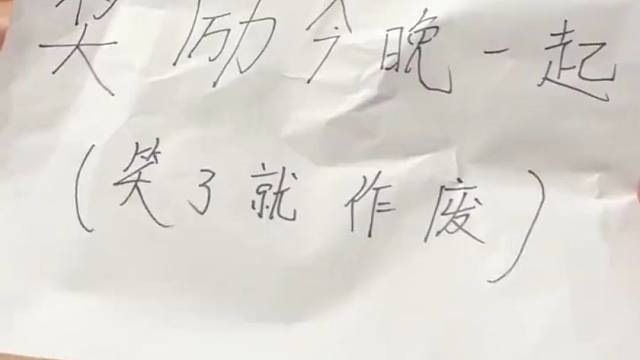 奖励今晚一起
(笑了就作废)